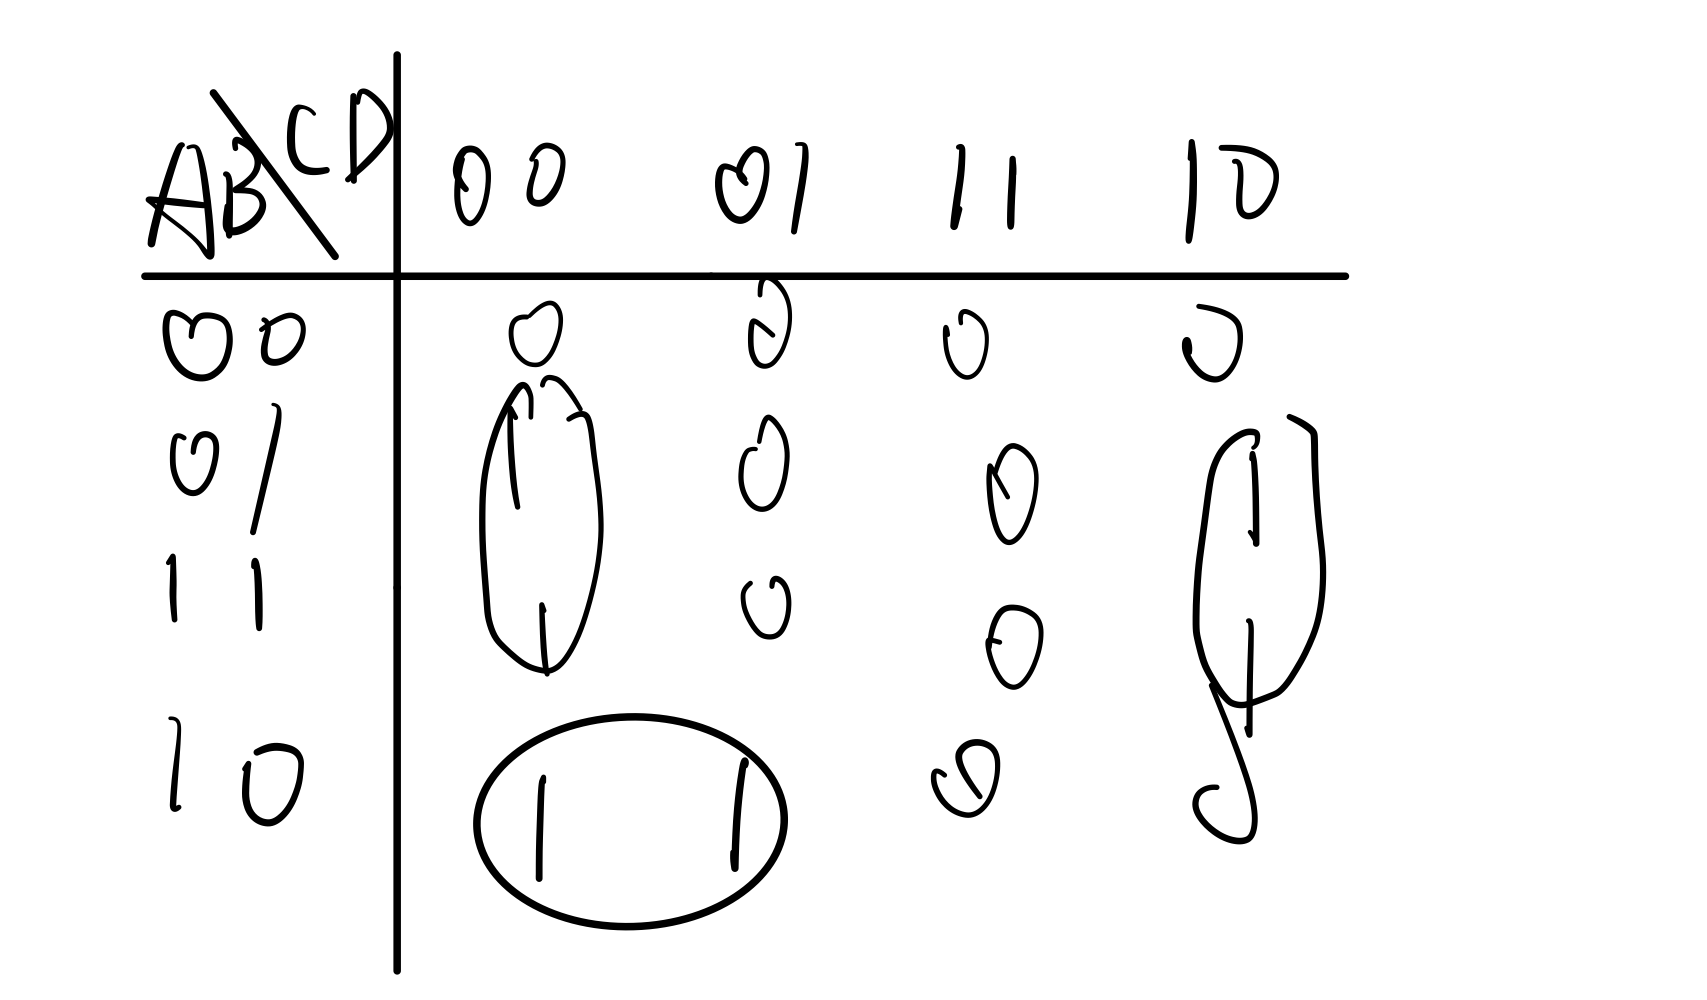 AB\CD 00 01 11 10
00 0 0 0 0
01 1 0 0 1
11 1 0 0 1
10 1 1 0 0